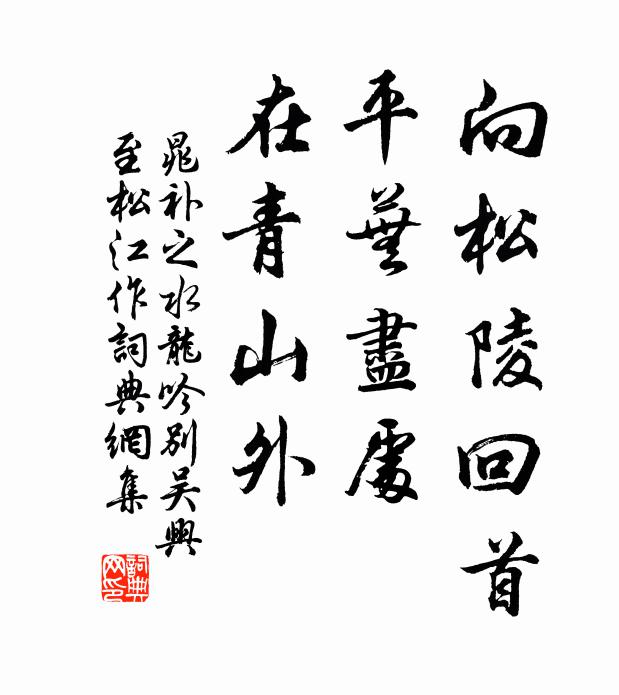 向松陵回首
平蕪盡處
在青山外
晁补之水龍吟別吴興
至松江作詞典網集
詞典网印